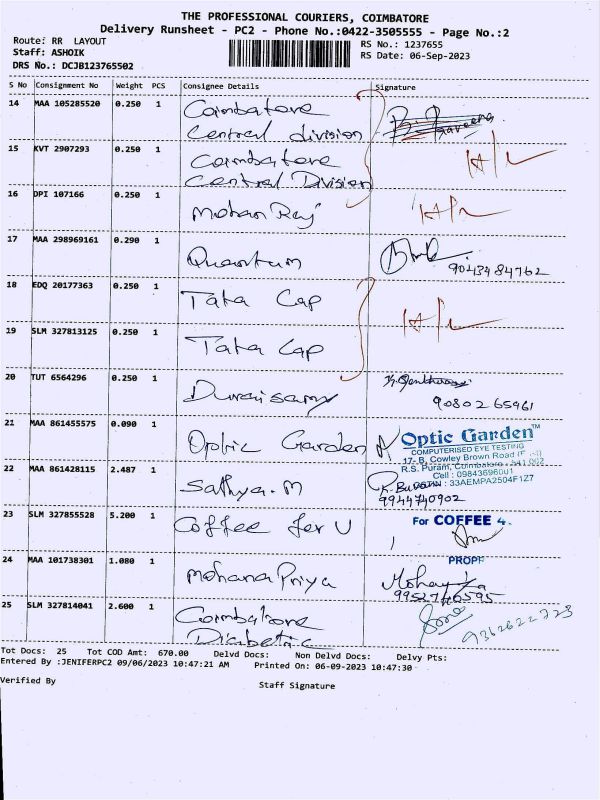 THE PROFESSIONAL COURIERS, COIMBATORE
Delivery Runsheet - PC2 - Phone No.:0422-3505555 - Page No.:2
Route: RR LAYOUT
Staff: ASHOIK
DRS No.: DCJB123765502
RS No.: 1237655
RS Date: 06-Sep-2023
S No Consignment No Weight PCS Consignee Details Signature
14 MAA 105285520 0.250 1 Coimbatore
Central division
15 KVT 2907293 0.250 1 Coimbatore
Central Division
16 DPI 107166 0.250 1 Mohan Raj
17 MAA 298969161 0.290 1 Quantum
9043484762
18 EDQ 20177363 0.250 1 Tata Cap
19 SLM 327813125 0.250 1 Tata Cap
20 TUT 6564296 0.250 1 Duraisamy
9080265961
21 MAA 861455575 0.090 1 Optic Garden
Optic Garden™
COMPUTERISED EYE TESTING
17-B, Cowley Brown Road
R.S. Puram, Coimbatore - 641 002
Cell : 098436960
: 33AEMPA2504F1Z7
22 MAA 861428115 2.487 1 Sathya.M
9944740902
23 SLM 327855528 5.200 1 Coffee for U
For COFFEE 4
PROP
24 MAA 101738301 1.080 1 Mohana Priya
25 SLM 327814041 2.600 1 Coimbatore
Diabetic
9362622723
Tot Docs: 25 Tot COD Amt: 670.00 Delvd Docs: Non Delvd Docs: Delvy Pts:
Entered By :JENIFERPC2 09/06/2023 10:47:21 AM Printed On: 06-09-2023 10:47:30
Verified By Staff Signature